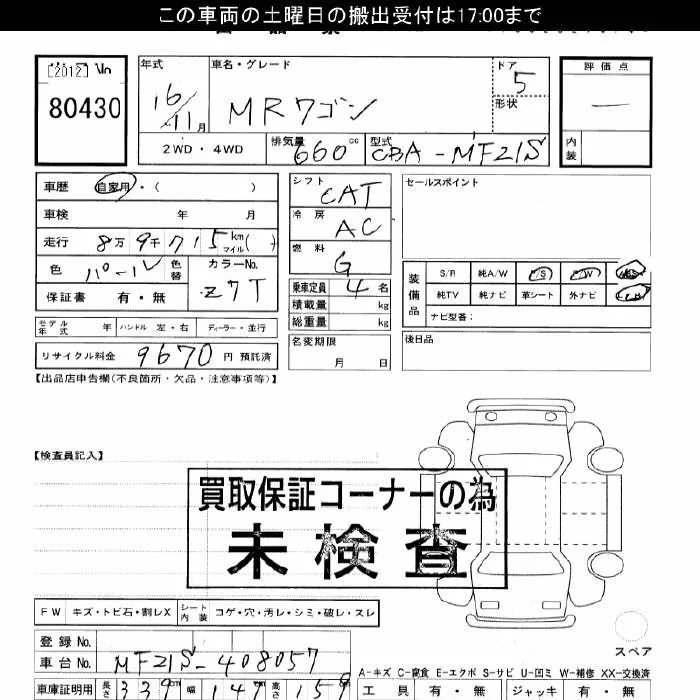 この車両の土曜日の搬出受付は17:00まで
[2012] No
80430
年式
16/11月
車名・グレード
MRワゴン
ドア
5
形状
評価点
—
内装
2WD・4WD
排気量 660 cc
型式 CBA-MF21S
車歴 自家用・( )
車検 年 月
走行 8万9千715 km マイル( )
色 パール 色替
カラーNo. Z7T
保証書 有・無
シフト CAT
冷房 AC
燃料 G
乗車定員 4名
積載量 kg
総重量 kg
名変期限
月 日
セールスポイント
装備品
S/R 純A/W P/S P/W
純TV 純ナビ 革シート 外ナビ
ナビ型番:
後日品
モデル年式 年 ハンドル 左・右 ディーラー・並行
リサイクル料金 9670 円 預託済
【出品店申告欄(不良箇所・欠品・注意事項等)】
【検査員記入】
買取保証コーナーの為
未検査
FW キズ・トビ石・割レX シート内装 コゲ・穴・汚レ・シミ・破レ・スレ
登録No.
車台No. MF21S-408057
スペア
A-キズ C-腐食 E-エクボ S-サビ U-凹ミ W-補修 XX-交換済
車庫証明用 長さ 339 cm 幅 147 cm 高さ 159
工具 有・無 ジャッキ 有・無